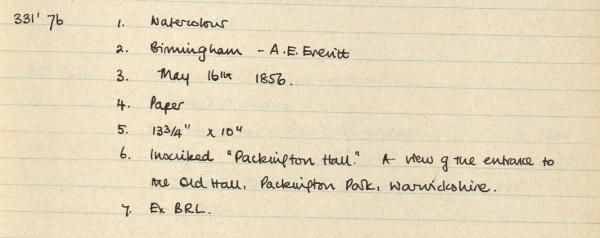 331' 76 1. Watercolour
2. Birmingham - A.E. Everitt
3. May 16th 1856.
4. Paper
5. 13 3/4" x 10"
6. Inscribed "Packington Hall." A view of the entrance to
the Old Hall, Packington Park, Warwickshire.
7. Ex BRL.